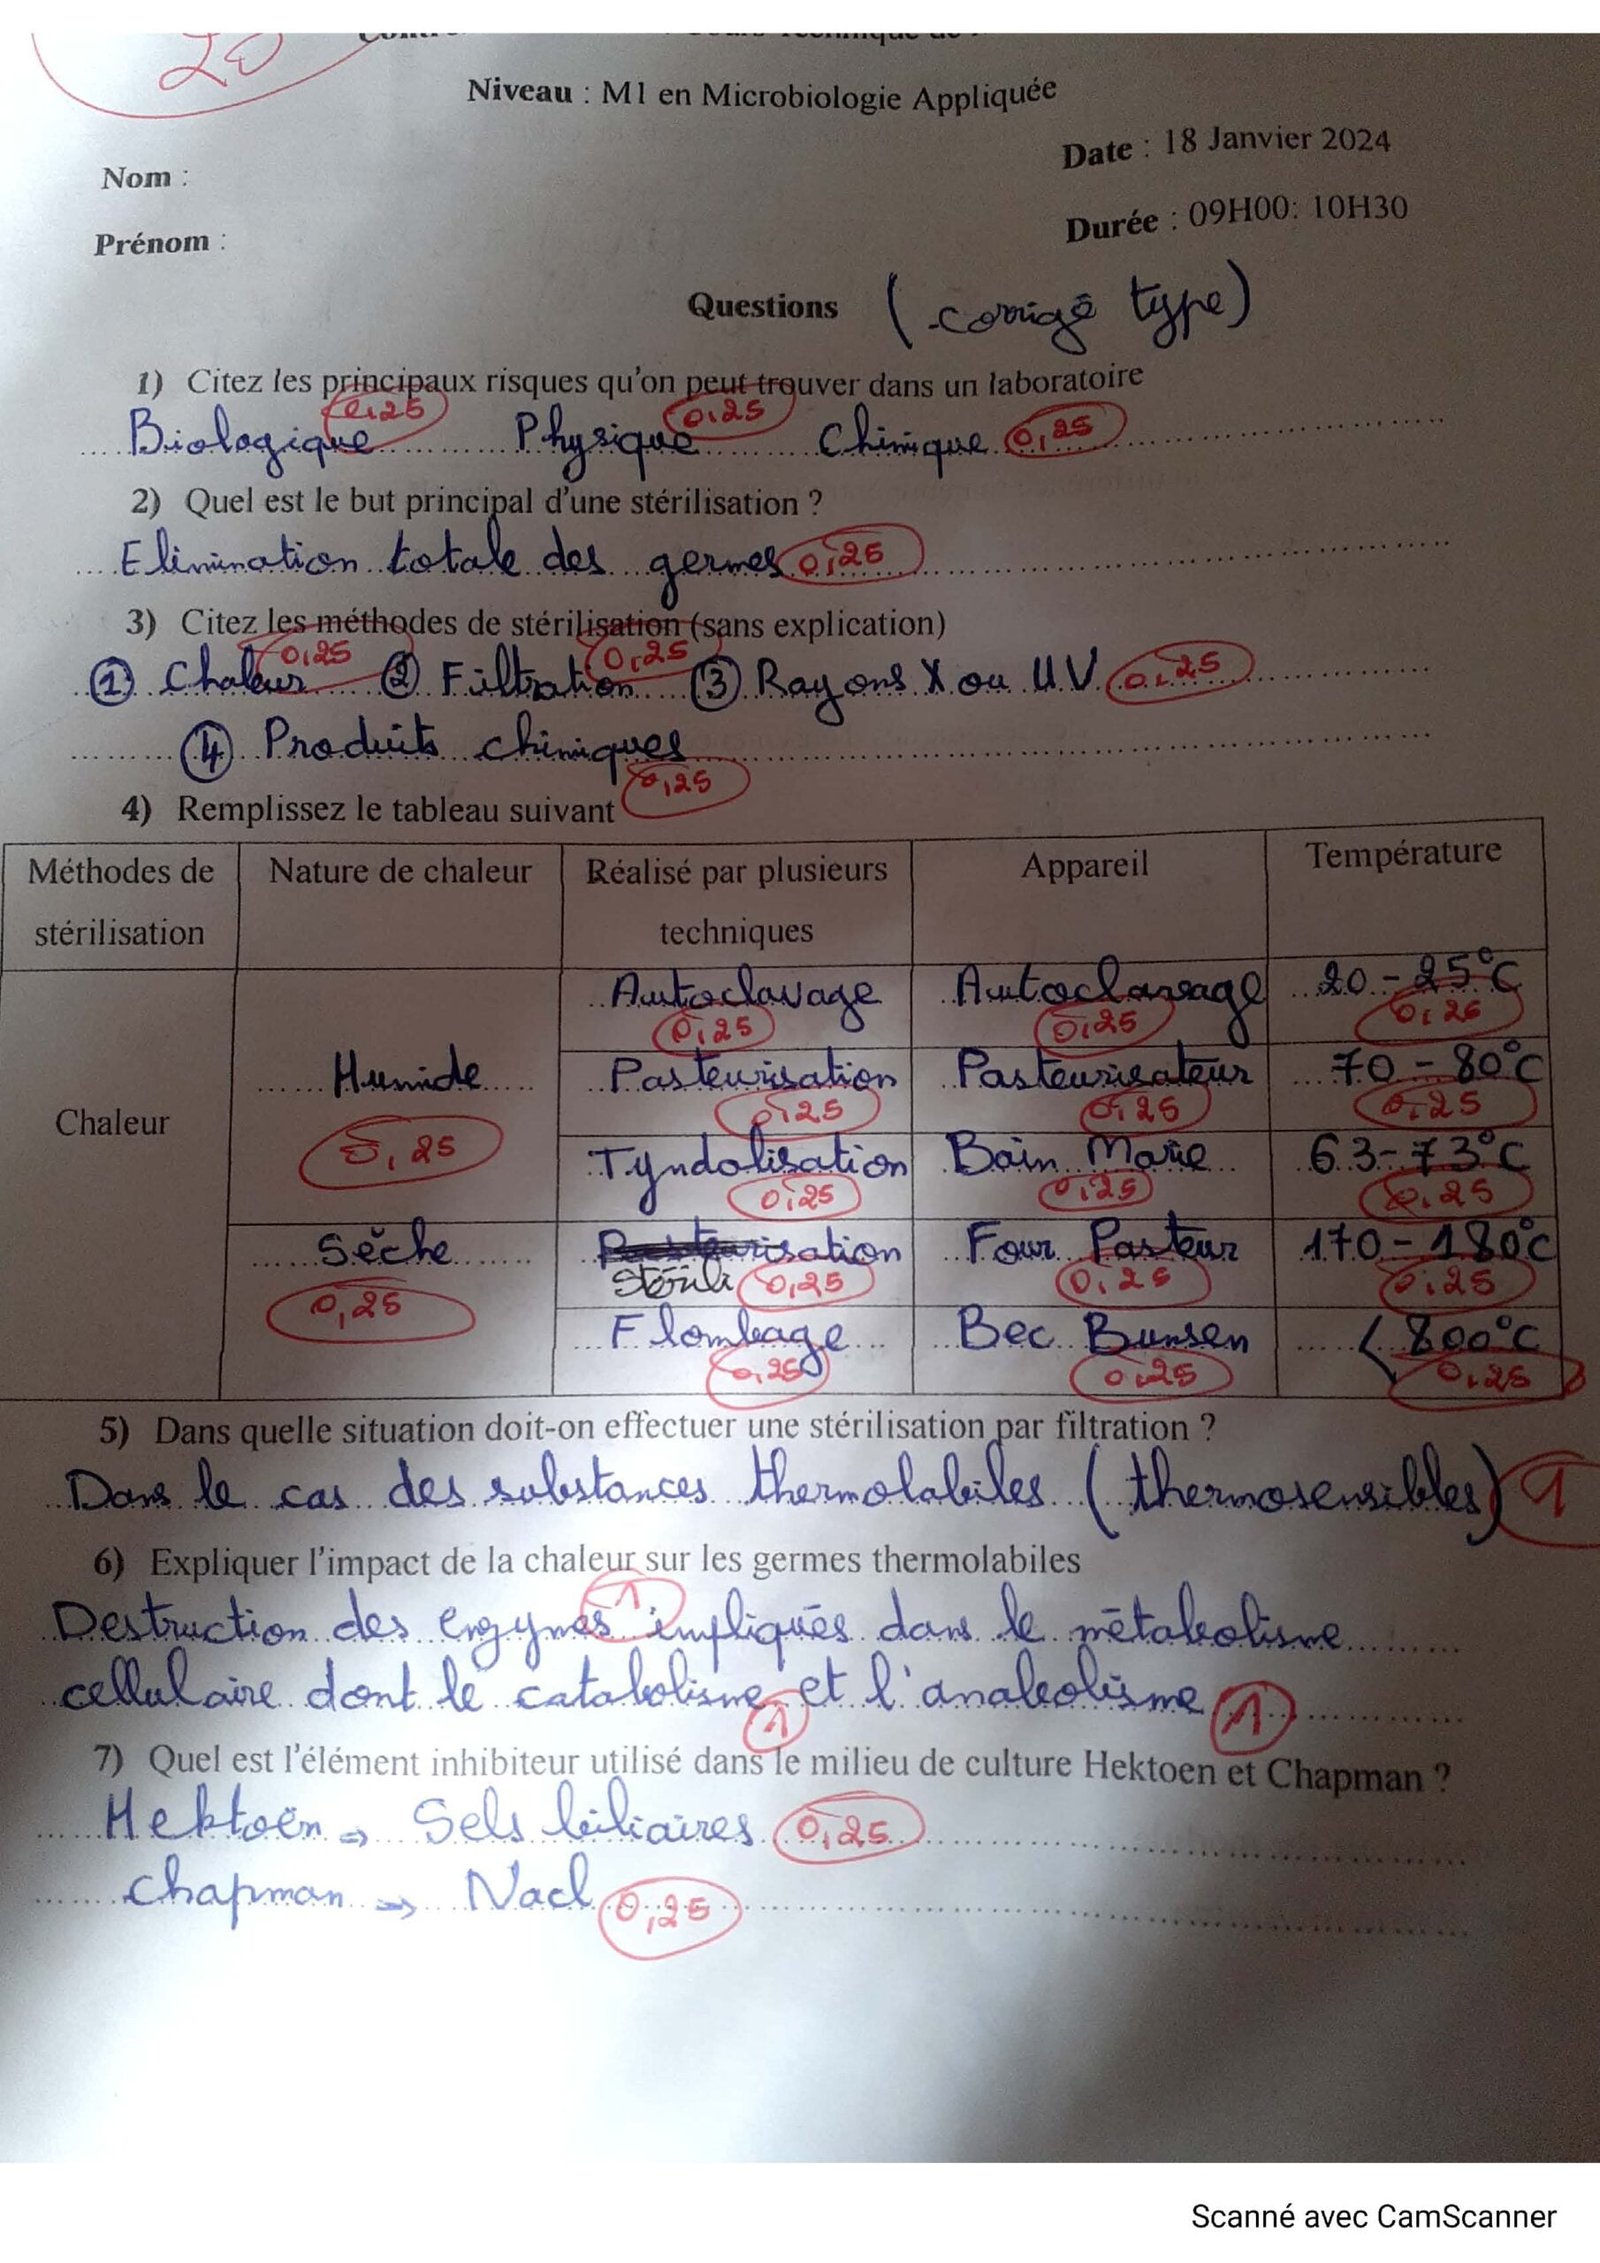 20
Niveau : M1 en Microbiologie Appliquée
Date : 18 Janvier 2024
Nom :
Durée : 09H00: 10H30
Prénom :
Questions (corrigé type)
1) Citez les principaux risques qu'on peut trouver dans un laboratoire
Biologique 0,25 Physique 0,25 Chimique 0,25
2) Quel est le but principal d'une stérilisation ?
Elimination totale des germes 0,25
3) Citez les méthodes de stérilisation (sans explication)
① Chaleur 0,25 ② Filtration 0,25 ③ Rayons X ou U.V 0,25
④ Produits chimiques 0,25
4) Remplissez le tableau suivant
Méthodes de stérilisation Nature de chaleur Réalisé par plusieurs techniques Appareil Température
Autoclavage 0,25 Autoclavage 0,25 20 - 25°C 0,25
Chaleur Humide 0,25 Pasteurisation 0,25 Pasteurisateur 0,25 70 - 80°C 0,25
Tyndolisation 0,25 Bain Marie 0,25 63 - 73°C 0,25
Sèche 0,25 Stérilisation 0,25 Four Pasteur 0,25 170 - 180°C 0,25
Flombage 0,25 Bec Bunsen 0,25 < 800°C 0,25
5) Dans quelle situation doit-on effectuer une stérilisation par filtration ?
Dans le cas des substances thermolabiles (thermosensibles) 1
6) Expliquer l'impact de la chaleur sur les germes thermolabiles
Destruction des enzymes 1 impliqués dans le métabolisme
cellulaire dont le catabolisme 1 et l'anabolisme 1
7) Quel est l'élément inhibiteur utilisé dans le milieu de culture Hektoen et Chapman ?
Hektoën ⇒ Sels biliaires 0,25
Chapman ⇒ Nacl 0,25
Scanné avec CamScanner